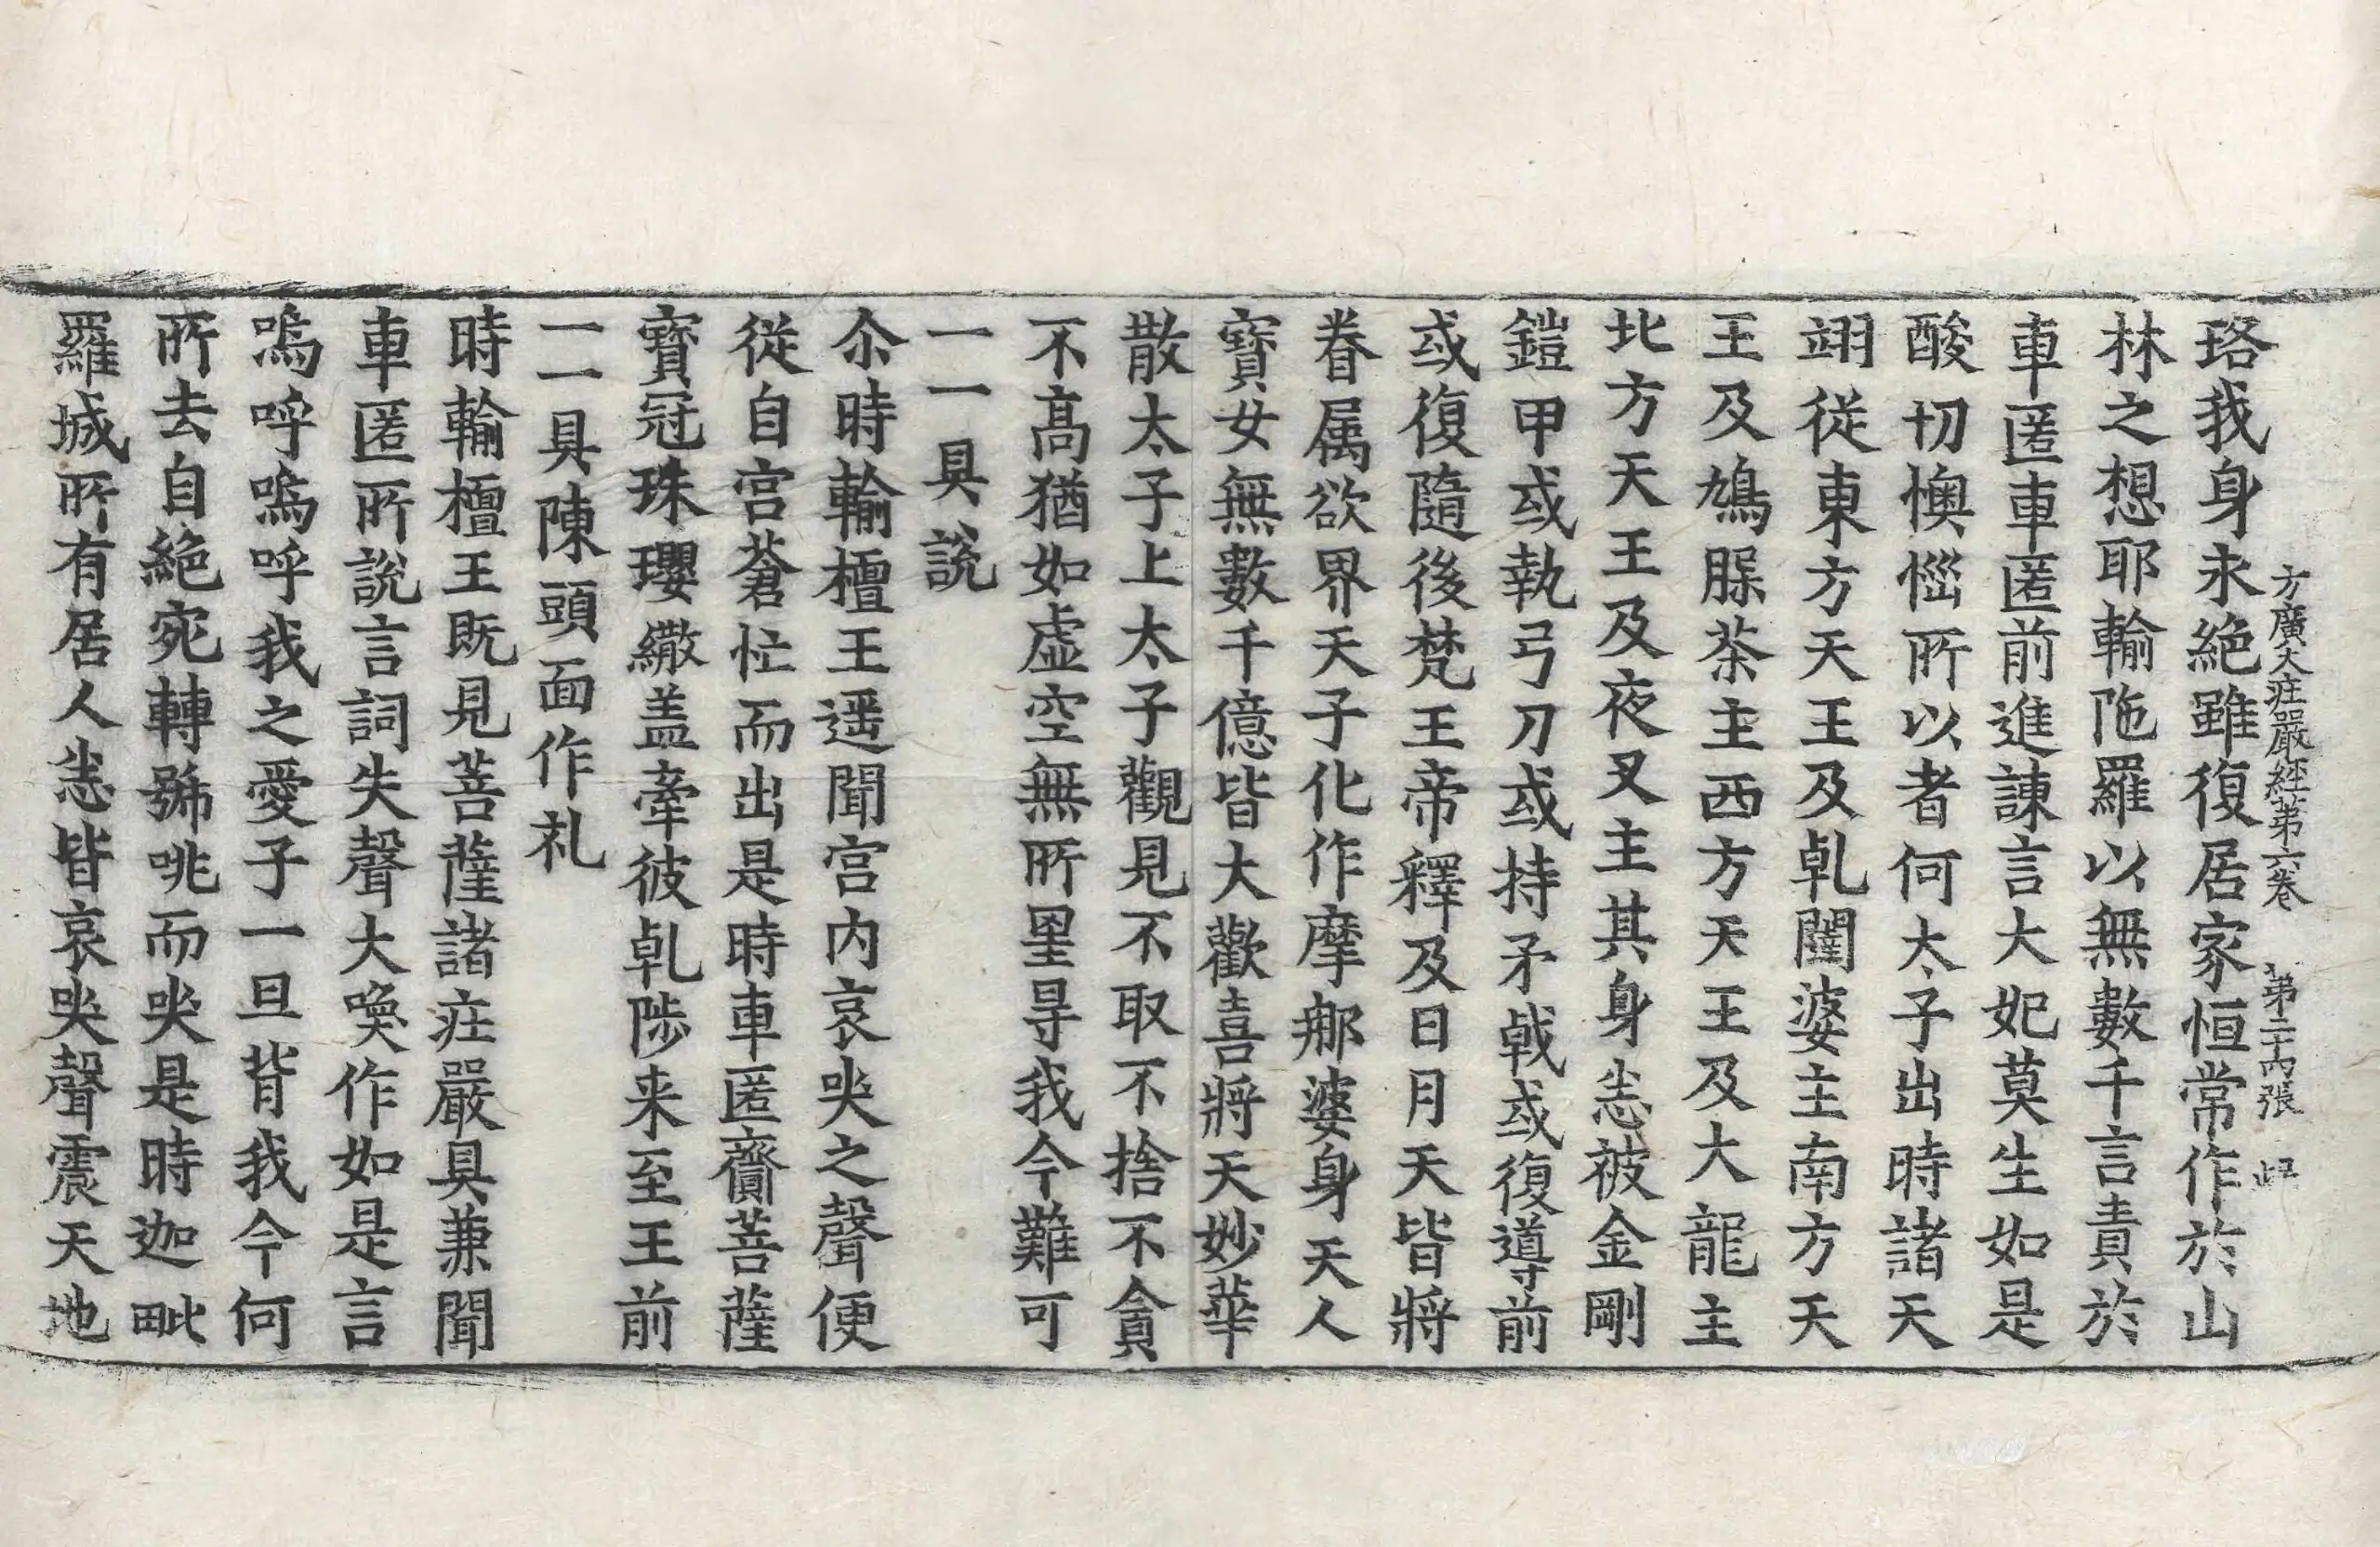 方廣大荘嚴経第六卷　第二十丙張
珞我身永絶雖復居家恒常作於山
林之想耶輸陁羅以無數千言責於
車匿車匿前進諫言大妃莫生如是
酸切懊惱所以者何太子出時諸天
翊従東方天王及乹闥婆主南方天
王及鳩䐡茶主西方天王及大龍主
北方天王及夜叉主其身㤀被金剛
鎧甲或執弓刀或持矛戟或復導前
或復隨後梵王帝釋及日月天皆將
眷属欲界天子化作摩那婆身天人
寳女無數千億皆大歡喜將天妙華
散太子上太子觀見不取不捨不貪
不髙猶如虚空無所罣㝵我今難可
一一具說
尒時輸檀王遥聞宫内哀哭之聲便
従自宫蒼忙而出是時車匿齎菩薩
寳冠珠瓔繖盖牽彼乹陟来至王前
一一具陳頭面作礼
時輸檀王既見菩薩諸荘嚴具兼聞
車匿所說言詞失聲大喚作如是言
嗚呼嗚呼我之愛子一旦背我今何
所去自絶宛轉號咷而哭是時迦毗
羅城所有居人㤀皆哀哭聲震天地